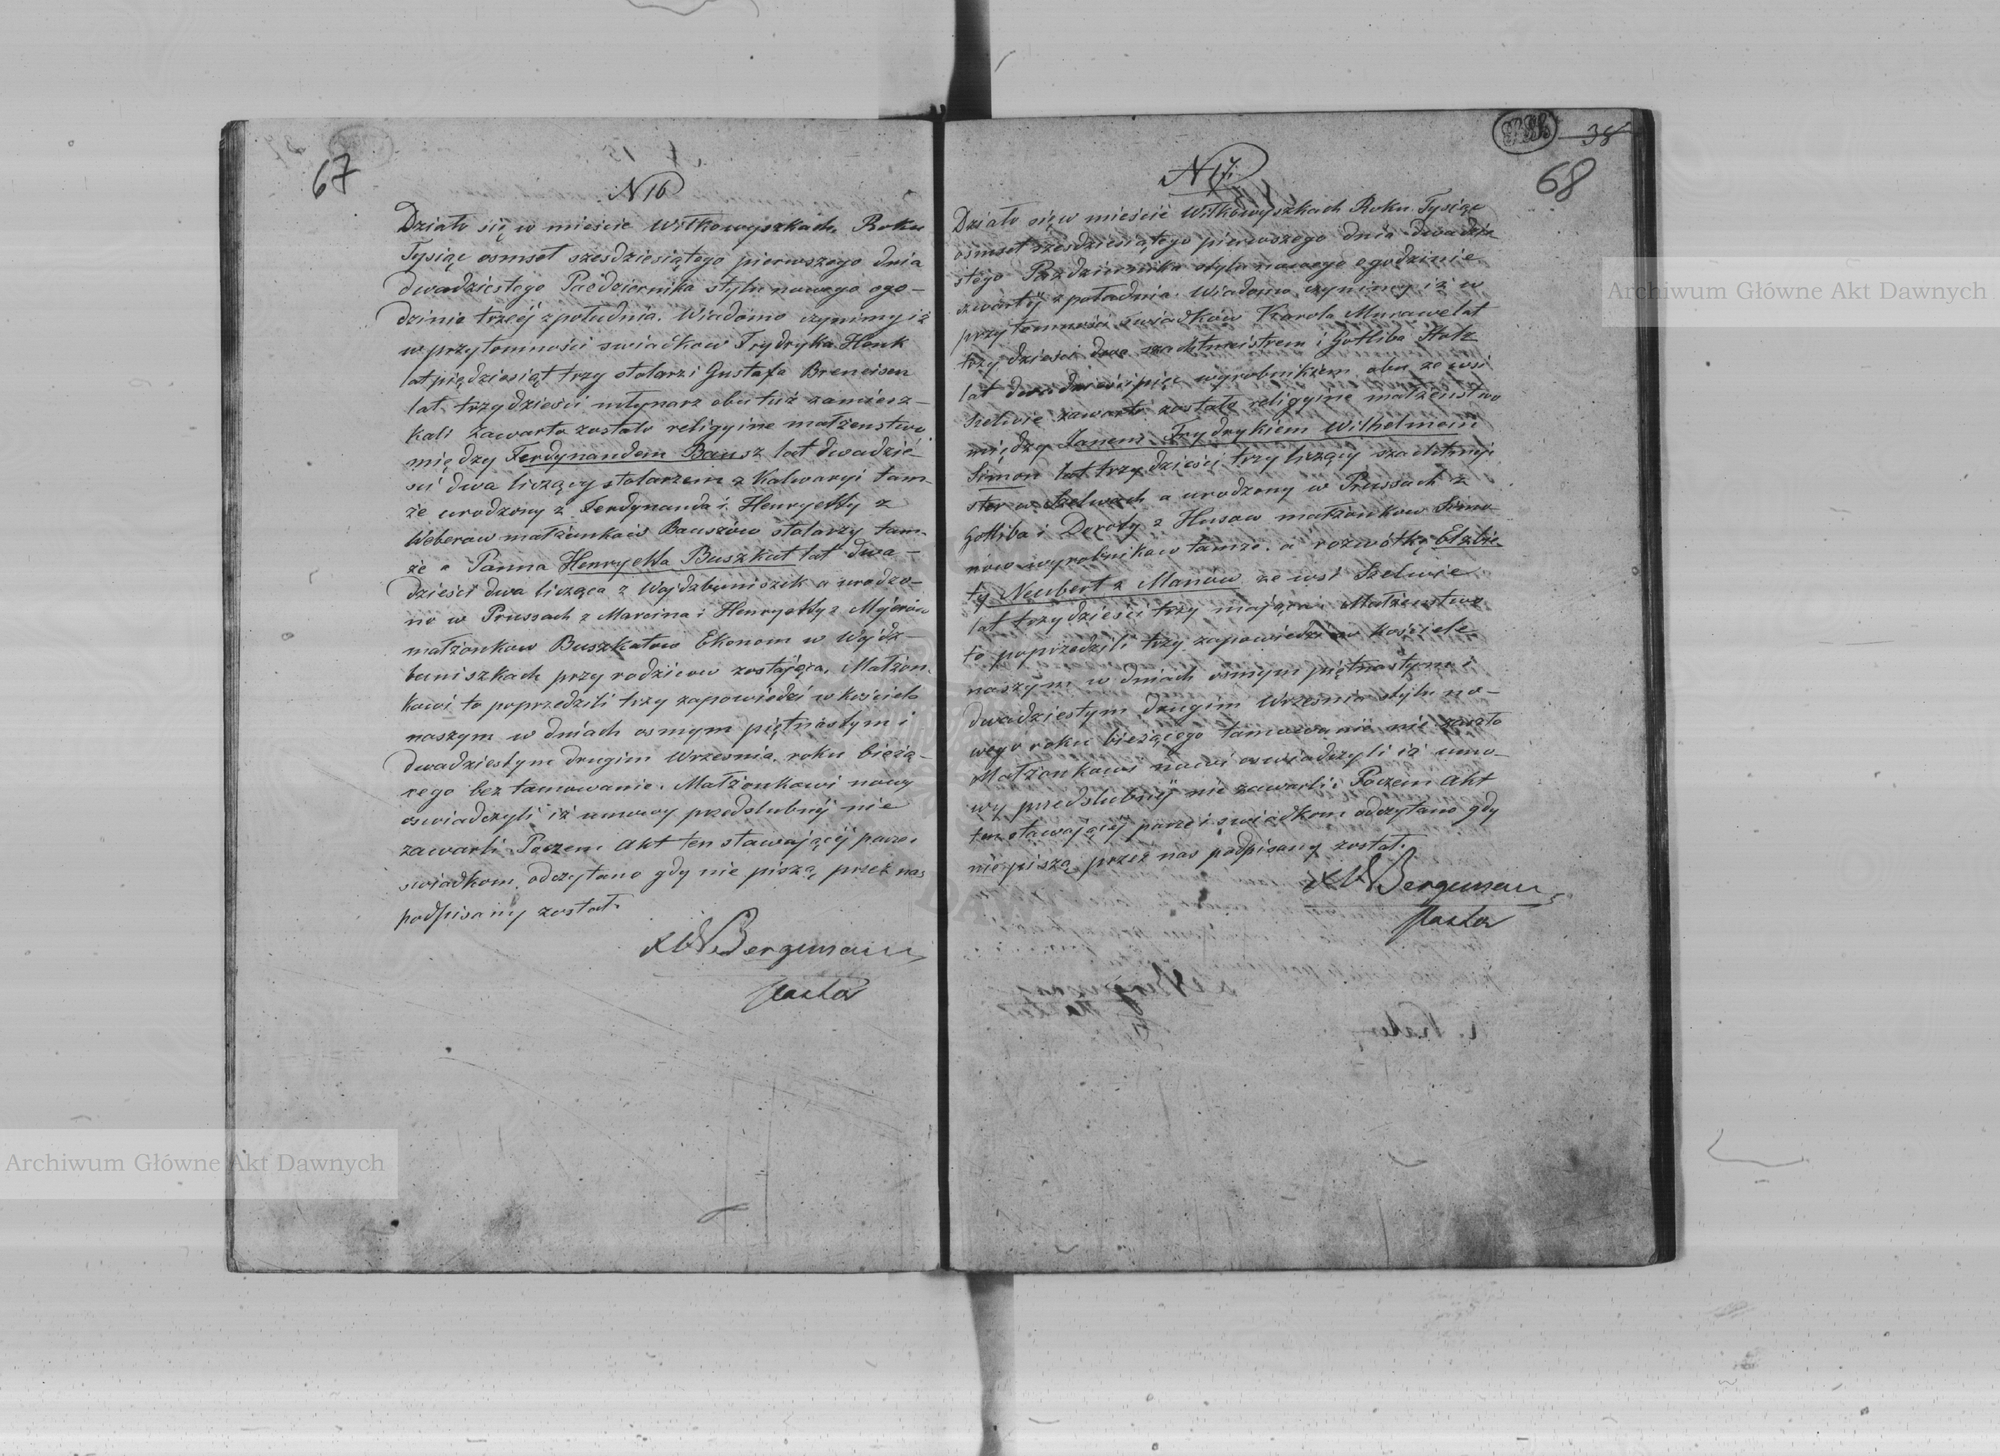 67
N 16
Działo się w mieście Wiłkowyszkach Roku
Tysiąc osmset szesdziesiątego pierwszego dnia
dwudziestego Pazdziernika stylu nowego ogo-
dzinie trzéj z południa. Wiadomo czynimy iż
w przytomności swiadkow Frydryka Henk
lat piędziesiąt trzy stolarz i Gustafa Breneisen
lat trzydzieści młynarz oba tuż zamiesz-
kali zawarto zostało religyine małżeństwo
między Ferdynandem Bausz lat dwadzie-
ści dwa liczący stolarzem z Kalwaryi tam-
że urodzony z Ferdynanda i Henryetty z
Weberow małżonkow Bauszów stolarzy tam-
że a Panna Henryetta Buszkat lat dwa-
dzieści dwa licząca z Wojdzbuniszek a urodzo-
no w Prussach z Marcina i Henryetty z Myierów
małżonkow Buszkatow Ekonom w Wojdz-
buniszkach przy rodzicow zostająca. Małżon-
kowi to poprzedzili trzy zapowiedzi w kosciele
naszym w dniach osmym piętnastym i
dwadziestym drugim Wrzesnia roku bieżą-
cego bez tamowanie. Małżonkowi nowy
oswiadczyli iż umowy przedslubnéj nie
zawarli. Poczem Akt ten stawającéj parze i
swiadkom odczytano gdy nie piszą przez nas
podpisany został.
Bergmann
Pastor
38
68
N 17
Działo się w mieście Wiłkowyszkach Roku Tysiąc
osmset szesdziesiątego pierwszego dnia dwudzie-
stego Pazdziernika stylu nowego o godzinie
czwartéj z południa. Wiadomo czynimy iż w
przytomności swiadkow Karola Murawe lat
trzydzieści dwa szachtmeistrem i Gotliba Stolz
lat dwadzieścia pięc wyrobnikiem oba ze wsi
Szelwie zawarto zostało religyine małżeństwo
między Janem Frydrykiem Wilhelmem
Simon lat trzydzieści trzy liczący szachtmej-
ster w Szelwach a urodzony w Prussach z
Gotliba i Doroty z Husow małżonkow Simo-
now wyrobnikow tamże. a rozwótką Elzbie-
ty Neubert z Manów ze wsi Szelwie
lat trzydzieści trzy mająca. Małżeństwo
to poprzedzili trzy zapowiedzi w kosciele
naszym w dniach osmym piętnastym i
dwadziestym drugim Wrzesnia stylu no-
wego roku bieżącego tamowanie nie zaszło
Małżonkowi nowi oswiadczyli iż umo-
wy przedslubnéj nie zawarli. Poczem Akt
ten stawającéj parze i swiadkom odczytano gdy
nie piszą przez nas podpisany został.
Bergmann
Pastor
Archiwum Główne Akt Dawnych
Archiwum Główne Akt Dawnych